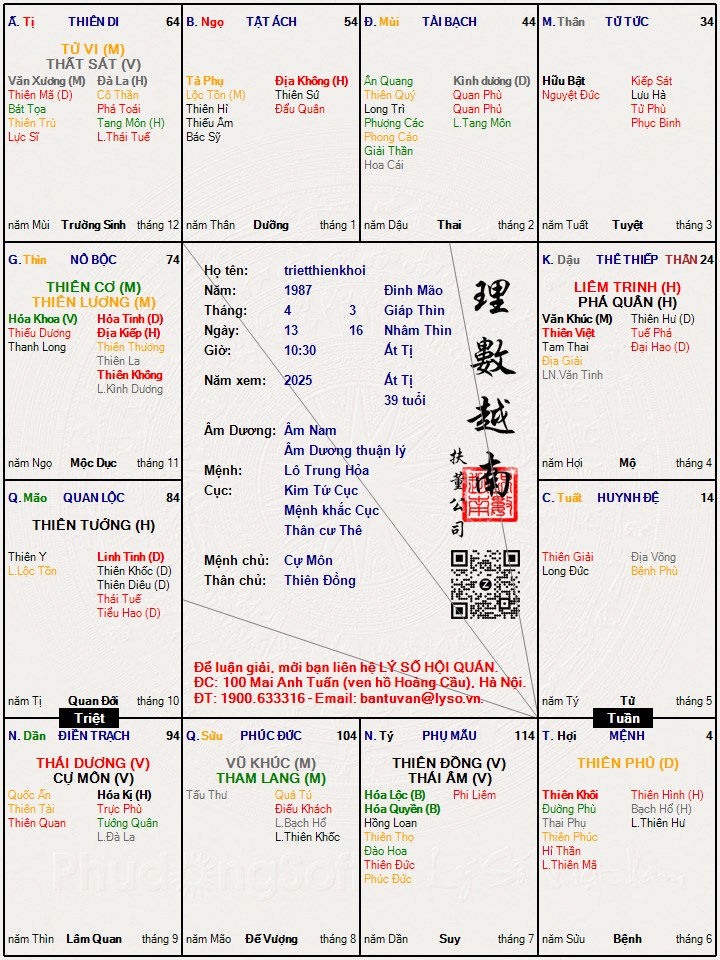 Ấ. Tị THIÊN DI 64
TỬ VI (M)
THẤT SÁT (V)
Văn Xương (M) Đà La (H)
Thiên Mã (D) Cô Thần
Bát Tọa Phá Toái
Thiên Trù Tang Môn (H)
Lực Sĩ L.Thái Tuế
năm Mùi Trường Sinh tháng 12
B. Ngọ TẬT ÁCH 54
Tả Phụ Địa Không (H)
Lộc Tồn (M) Thiên Sứ
Thiên Hỉ Đẩu Quân
Thiếu Âm
Bác Sỹ
năm Thân Dưỡng tháng 1
Đ. Mùi TÀI BẠCH 44
Ân Quang Kình dương (D)
Thiên Quý Quan Phù
Long Trì Quan Phủ
Phượng Các L.Tang Môn
Phong Cáo
Giải Thần
Hoa Cái
năm Dậu Thai tháng 2
M. Thân TỬ TỨC 34
Hữu Bật Kiếp Sát
Nguyệt Đức Lưu Hà
Tử Phù
Phục Binh
năm Tuất Tuyệt tháng 3
G. Thìn NÔ BỘC 74
THIÊN CƠ (M)
THIÊN LƯƠNG (M)
Hóa Khoa (V) Hỏa Tinh (D)
Thiếu Dương Địa Kiếp (H)
Thanh Long Thiên Thương
Thiên La
Thiên Không
L.Kình Dương
năm Ngọ Mộc Dục tháng 11
Họ tên: trietthienkhoi
Năm: 1987 Đinh Mão
Tháng: 4 3 Giáp Thìn
Ngày: 13 16 Nhâm Thìn
Giờ: 10:30 Ất Tị
Năm xem: 2025 Ất Tị
39 tuổi
Âm Dương: Âm Nam
Âm Dương thuận lý
Mệnh: Lô Trung Hỏa
Cục: Kim Tứ Cục
Mệnh khắc Cục
Thân cư Thê
Mệnh chủ: Cự Môn
Thân chủ: Thiên Đồng
理數越南
扶董公司
Để luận giải, mời bạn liên hệ LÝ SỐ HỘI QUÁN.
ĐC: 100 Mai Anh Tuấn (ven hồ Hoàng Cầu), Hà Nội.
ĐT: 1900.633316 - Email: bantuvan@lyso.vn.
K. Dậu THÊ THIẾP THÂN 24
LIÊM TRINH (H)
PHÁ QUÂN (H)
Văn Khúc (M) Thiên Hư (D)
Thiên Việt Tuế Phá
Tam Thai Đại Hao (D)
Địa Giải
LN.Văn Tinh
năm Hợi Mộ tháng 4
Q. Mão QUAN LỘC 84
THIÊN TƯỚNG (H)
Thiên Y Linh Tinh (D)
L.Lộc Tồn Thiên Khốc (D)
Thiên Diêu (D)
Thái Tuế
Tiểu Hao (D)
năm Tị Quan Đới tháng 10
C. Tuất HUYNH ĐỆ 14
Thiên Giải Địa Võng
Long Đức Bệnh Phù
năm Tý Tử tháng 5
Triệt
Tuần
N. Dần ĐIỀN TRẠCH 94
THÁI DƯƠNG (V)
CỰ MÔN (V)
Quốc Ấn Hóa Kị (H)
Thiên Tài Trực Phù
Thiên Quan Tướng Quân
L.Đà La
năm Thìn Lâm Quan tháng 9
Q. Sửu PHÚC ĐỨC 104
VŨ KHÚC (M)
THAM LANG (M)
Tấu Thư Quả Tú
Điếu Khách
L.Bạch Hổ
L.Thiên Khốc
năm Mão Đế Vượng tháng 8
N. Tý PHỤ MẪU 114
THIÊN ĐỒNG (V)
THÁI ÂM (V)
Hóa Lộc (B) Phi Liêm
Hóa Quyền (B)
Hồng Loan
Thiên Thọ
Đào Hoa
Thiên Đức
Phúc Đức
năm Dần Suy tháng 7
T. Hợi MỆNH 4
THIÊN PHỦ (D)
Thiên Khôi Thiên Hình (H)
Đường Phù Bạch Hổ (H)
Thai Phụ L.Thiên Hư
Thiên Phúc
Hỉ Thần
L.Thiên Mã
năm Sửu Bệnh tháng 6